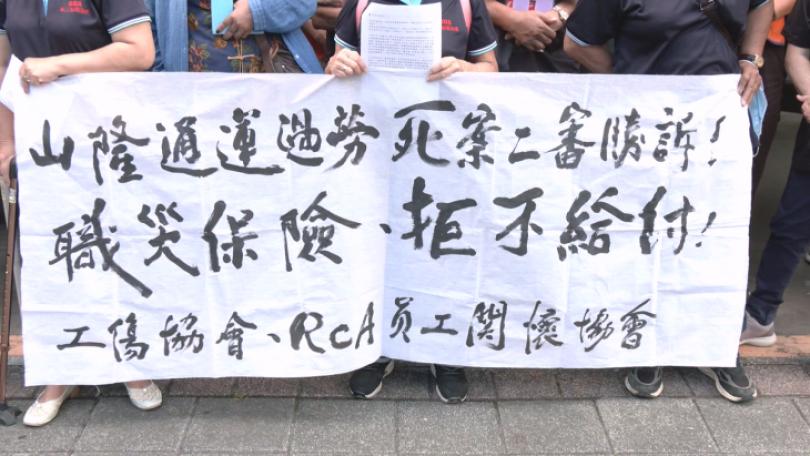 山隆通運過勞死案二審勝訴!
職災保險、拒不給付!
工傷協會、RCA員工関懷協會